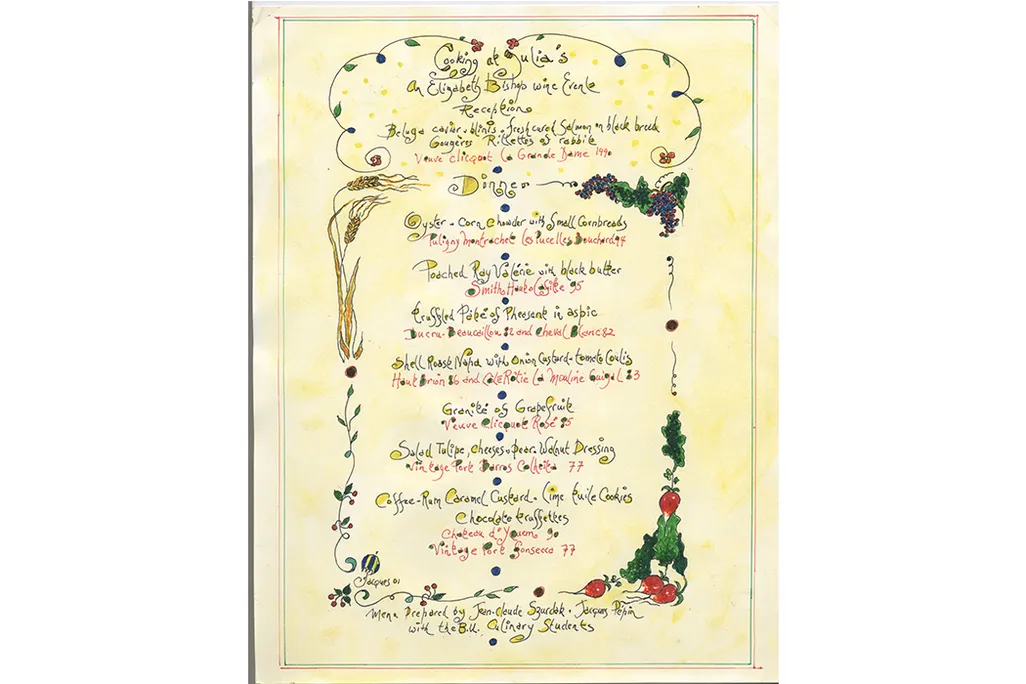 Cooking at Julia's
An Elizabeth Bishop wine Event
Reception
Beluga caviar - blinis - fresh cured Salmon on black bread
Gougères Rillettes of rabbit
Veuve Clicquot La Grande Dame 1990
Dinner
Oyster - Corn Chowder with Small Cornbreads
Puligny Montrachet Les Pucelles Bouchard 94
Poached Ray Valérie with black butter
Smith Haut Lafitte 95
Truffled Pâté of Pheasant in aspic
Ducru-Beaucaillou 82 and Cheval Blanc 82
Shell Roast Napa with Onion Custard - tomato Coulis
Haut Brion 86 and Côte Rôtie La Mouline Guigal 83
Granité of Grapefruit
Veuve Clicquot Rosé 85
Salad Tulipe, Cheeses - pear - Walnut Dressing
Vintage Port Barros Colheita 77
Coffee-Rum Caramel Custard - Lime tuile Cookies
Chocolate truffettes
Chateau d'Yquem 90
Vintage Port Fonseca 77
Jacques 01
Menu Prepared by Jean-Claude Szurdak - Jacques Pépin
with the B.U. Culinary Students